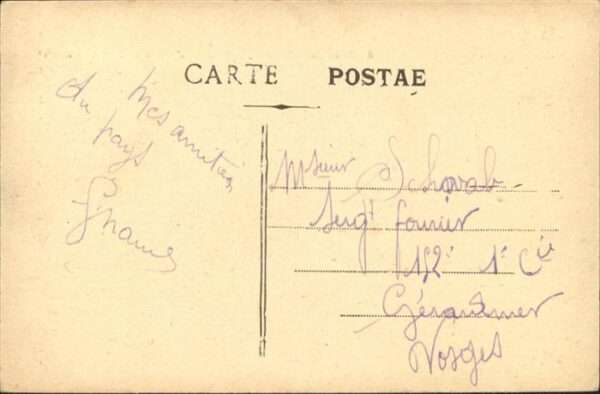 CARTE POSTAE
Mes amitiés
du pays
Msieur Schwab
Sergt fourier
152e 1e Cie
Gérardmer
Vosges